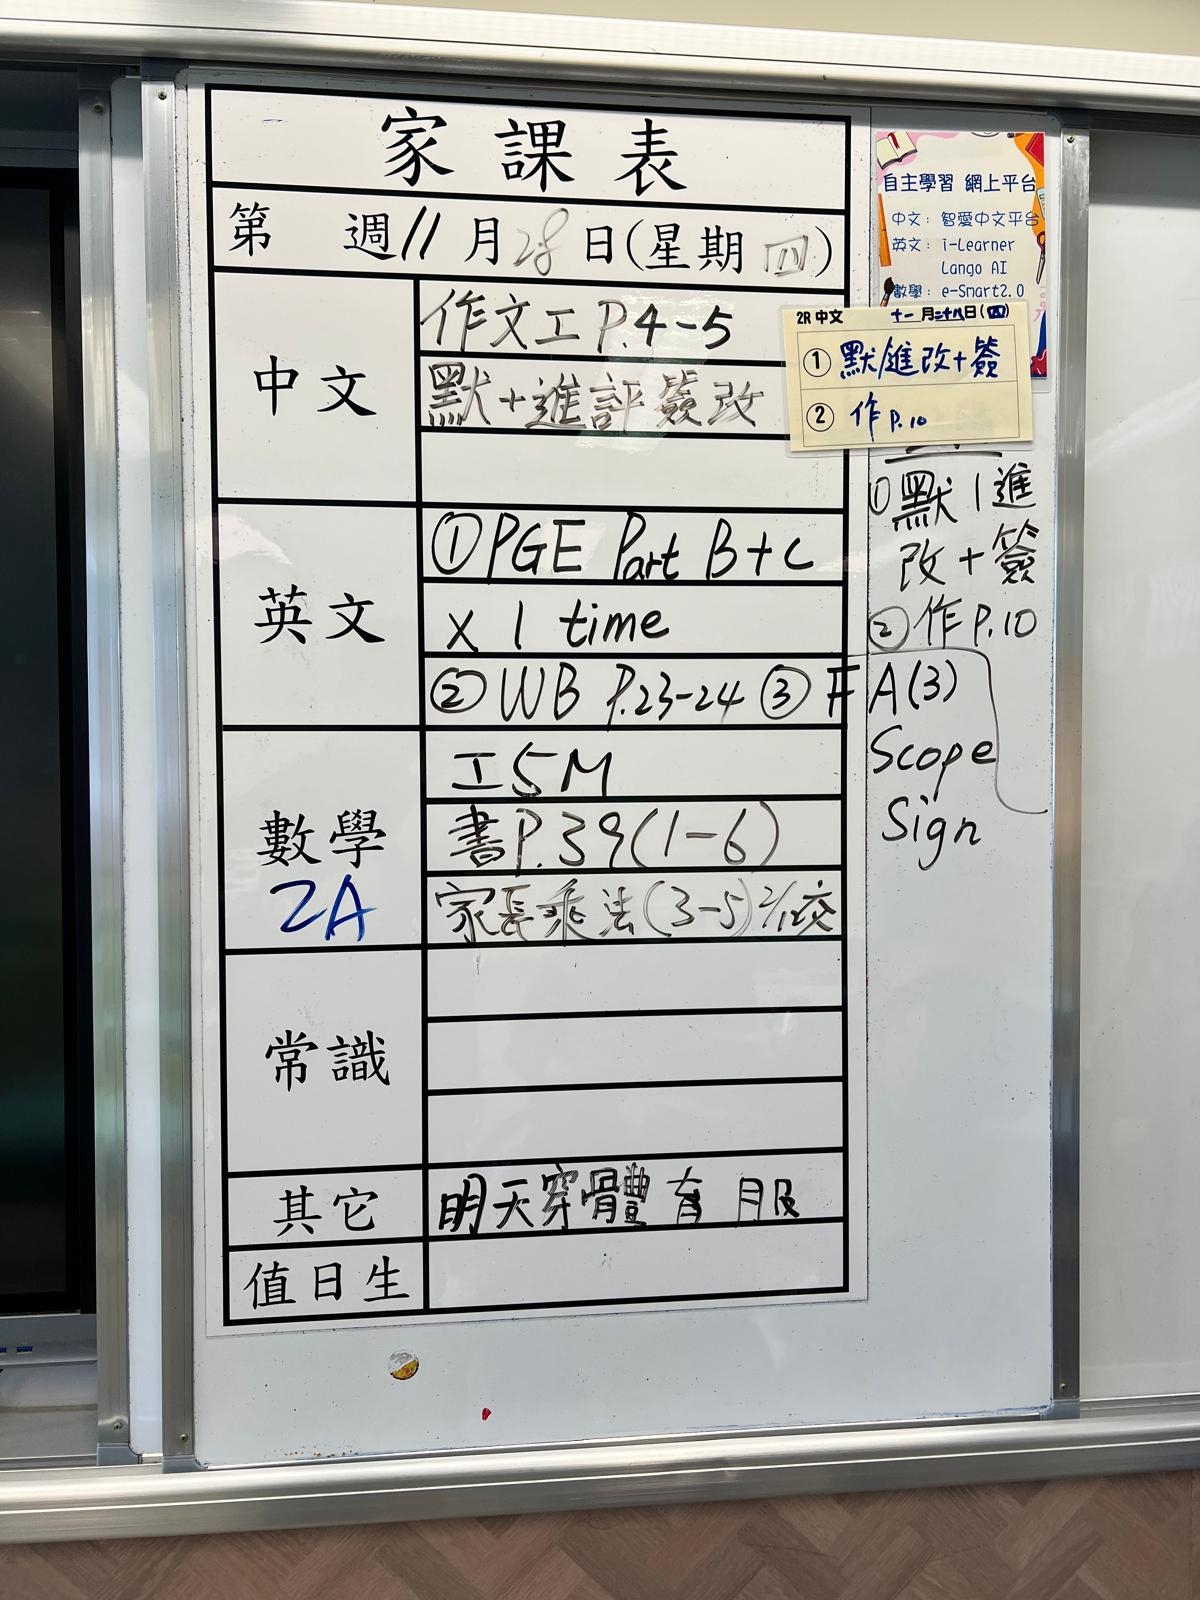 家課表
第 週 11月28日(星期四)
中文
作文工 P.4-5
默+進評簽改
英文
① PGE Part B+C
x 1 time
② WB P.23-24 ③ FA(3)
Scope
Sign
數學
2A
工5M
書P.39(1-6)
家長乘法(3-5) 2/12交
常識
其它
明天穿體育服
值日生
自主學習 網上平台
中文：智愛中文平台
英文：i-Learner
Lango AI
數學：e-Smart2.0
2R 中文 十一月二十八日(四)
① 默/進改+簽
② 作 P.10
① 默|進
改+簽
② 作 P.10